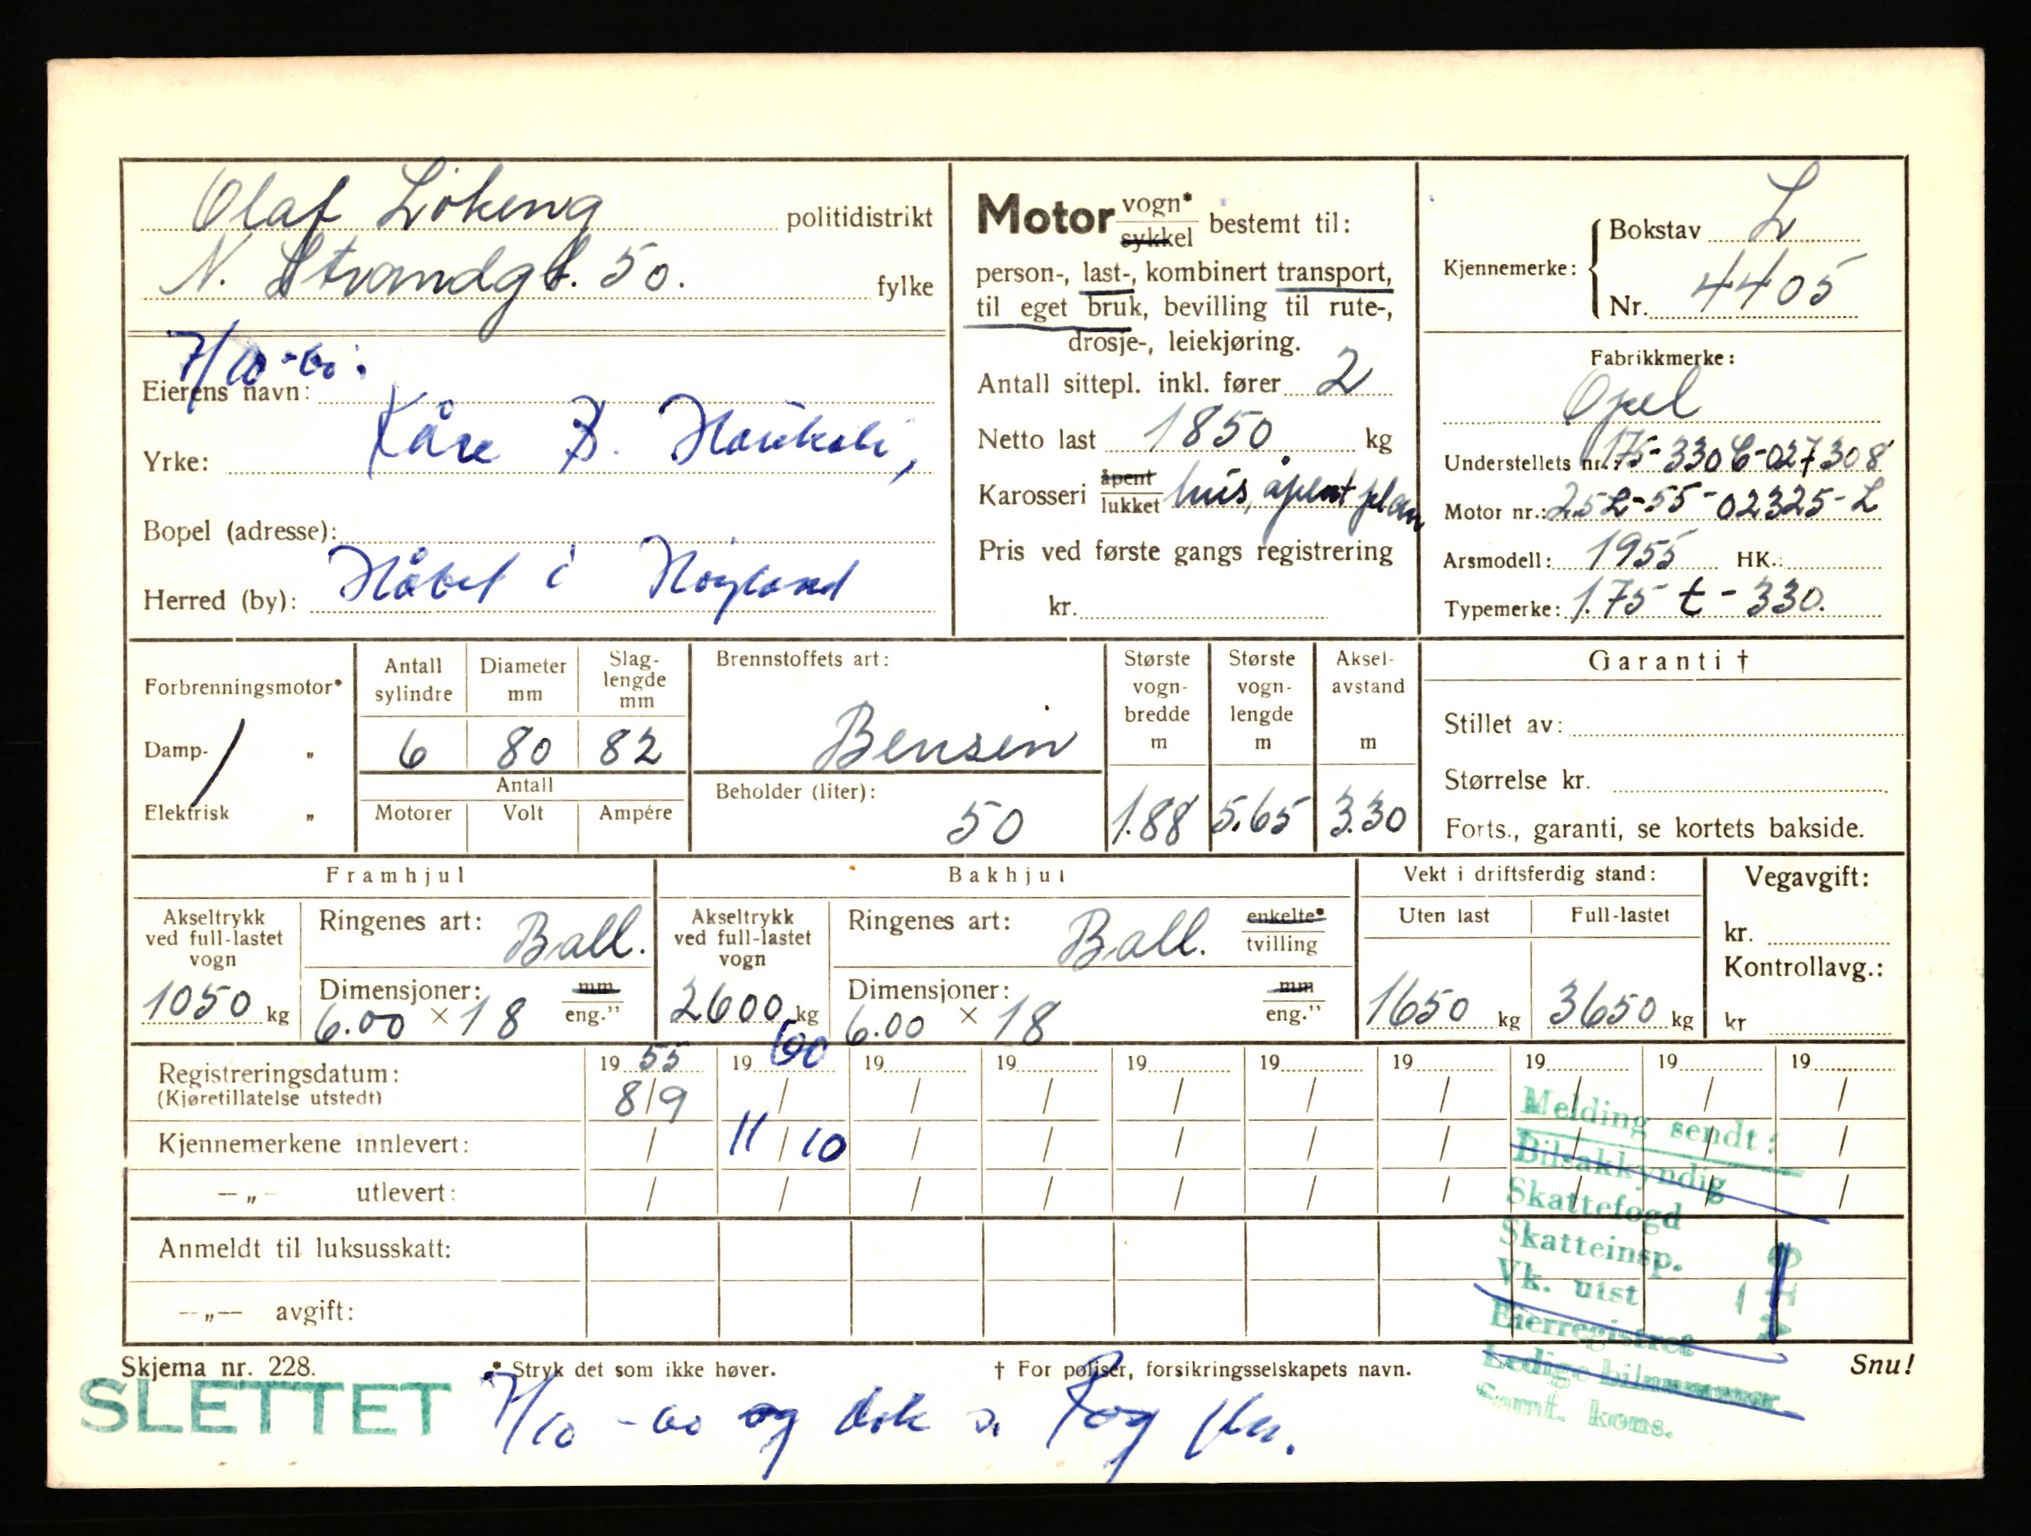 Olaf Lökeng politidistrikt
N. Strandgt. 50. fylke
7/10-60.
Eierens navn:
Kåre B. Haukali,
Yrke:
Bopel (adresse):
Herred (by): Håbet i Høyland
Motor vogn* / sykkel bestemt til:
person-, last-, kombinert transport,
til eget bruk, bevilling til rute-,
drosje-, leiekjøring.
Antall sittepl. inkl. fører 2
Netto last 1850 kg
Karosseri åpent / lukket hus, åpent plan
Pris ved første gangs registrering
kr.
Kjennemerke: Bokstav L
Nr. 4405
Fabrikkmerke:
Opel
Understellets nr.: 175-330C-027308
Motor nr.: 25L-55-02325-L
Arsmodell: 1955 HK.:
Typemerke: 1.75 t - 330.
Forbrenningsmotor*
Damp- „
Elektrisk „
Antall sylindre 6
Diameter mm 80
Slaglengde mm 82
Antall
Motorer Volt Ampére
Brennstoffets art:
Bensin
Beholder (liter):
50
Største vognbredde m 1.88
Største vognlengde m 5.65
Akselavstand m 3.30
Garanti †
Stillet av:
Størrelse kr.
Forts., garanti, se kortets bakside.
Framhjul
Akseltrykk ved full-lastet vogn
1050 kg
Ringenes art: Ball.
Dimensjoner: mm / eng."
6.00 × 18
Bakhjul
Akseltrykk ved full-lastet vogn
2600 kg
Ringenes art: Ball. enkelte* / tvilling
Dimensjoner: mm / eng."
6.00 × 18
Vekt i driftsferdig stand:
Uten last Full-lastet
1650 kg 3650 kg
Vegavgift:
kr.
Kontrollavg.:
kr
19 55 19 60 19 19 19 19 19 19 19 19
Registreringsdatum: 8/9 / / / / / / / / /
(Kjøretillatelse utstedt)
Kjennemerkene innlevert: / 11/10 / / / / / / / /
— „ — utlevert: / / / / / / / / / /
Anmeldt til luksusskatt:
— „ — avgift:
Melding sendt:
Bilsakkyndig
Skattefogd
Skatteinsp.
Vk. utst
Eierregistret
Ledige bilnummer
Samt. kons.
Skjema nr. 228. * Stryk det som ikke høver. † For poliser, forsikringsselskapets navn. Snu!
SLETTET
7/10-60 og dok s. Rog pkr.